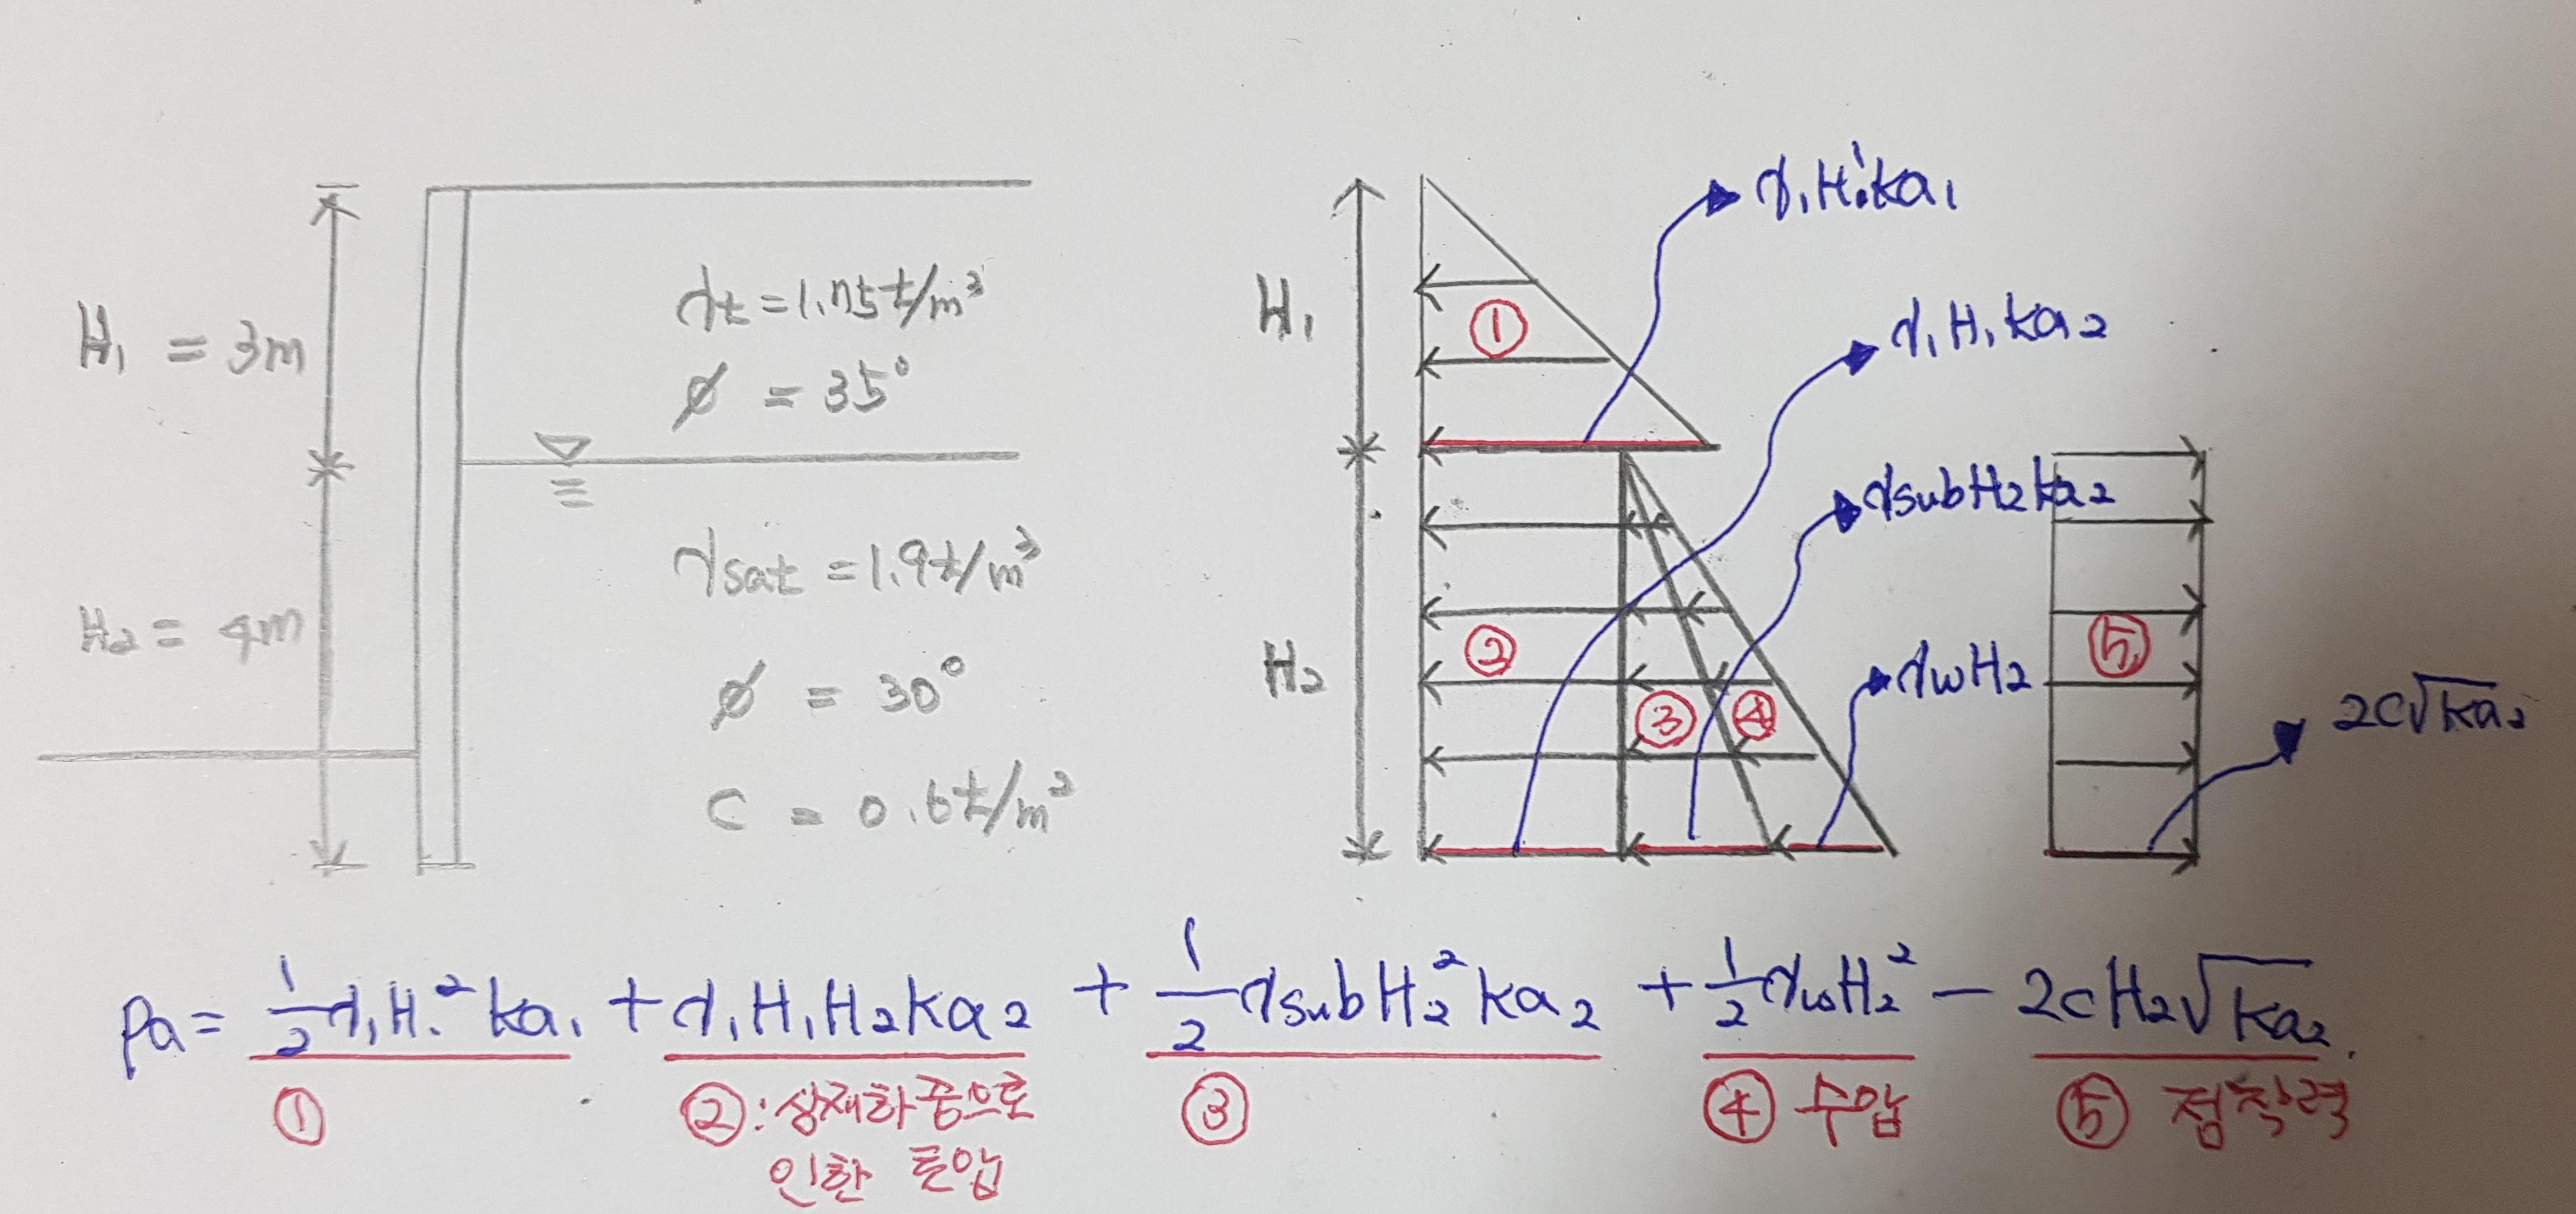 H₁ = 3m
γt = 1.75t/m³
ø = 35°
H₂ = 4m
γsat = 1.9t/m³
ø = 30°
C = 0.6t/m²
H₁
H₂
①
②
③
④
⑤
γ₁H₁ka₁
γ₁H₁ka₂
γsubH₂ka₂
γwH₂
2C√ka₂
Pa = 1/2 γ₁H₁²ka₁ + γ₁H₁H₂ka₂ + 1/2 γsubH₂²ka₂ + 1/2 γwH₂² - 2cH₂√ka₂.
① ②:상재하중으로 ③ ④ 수압 ⑤ 점착력
인한 토압